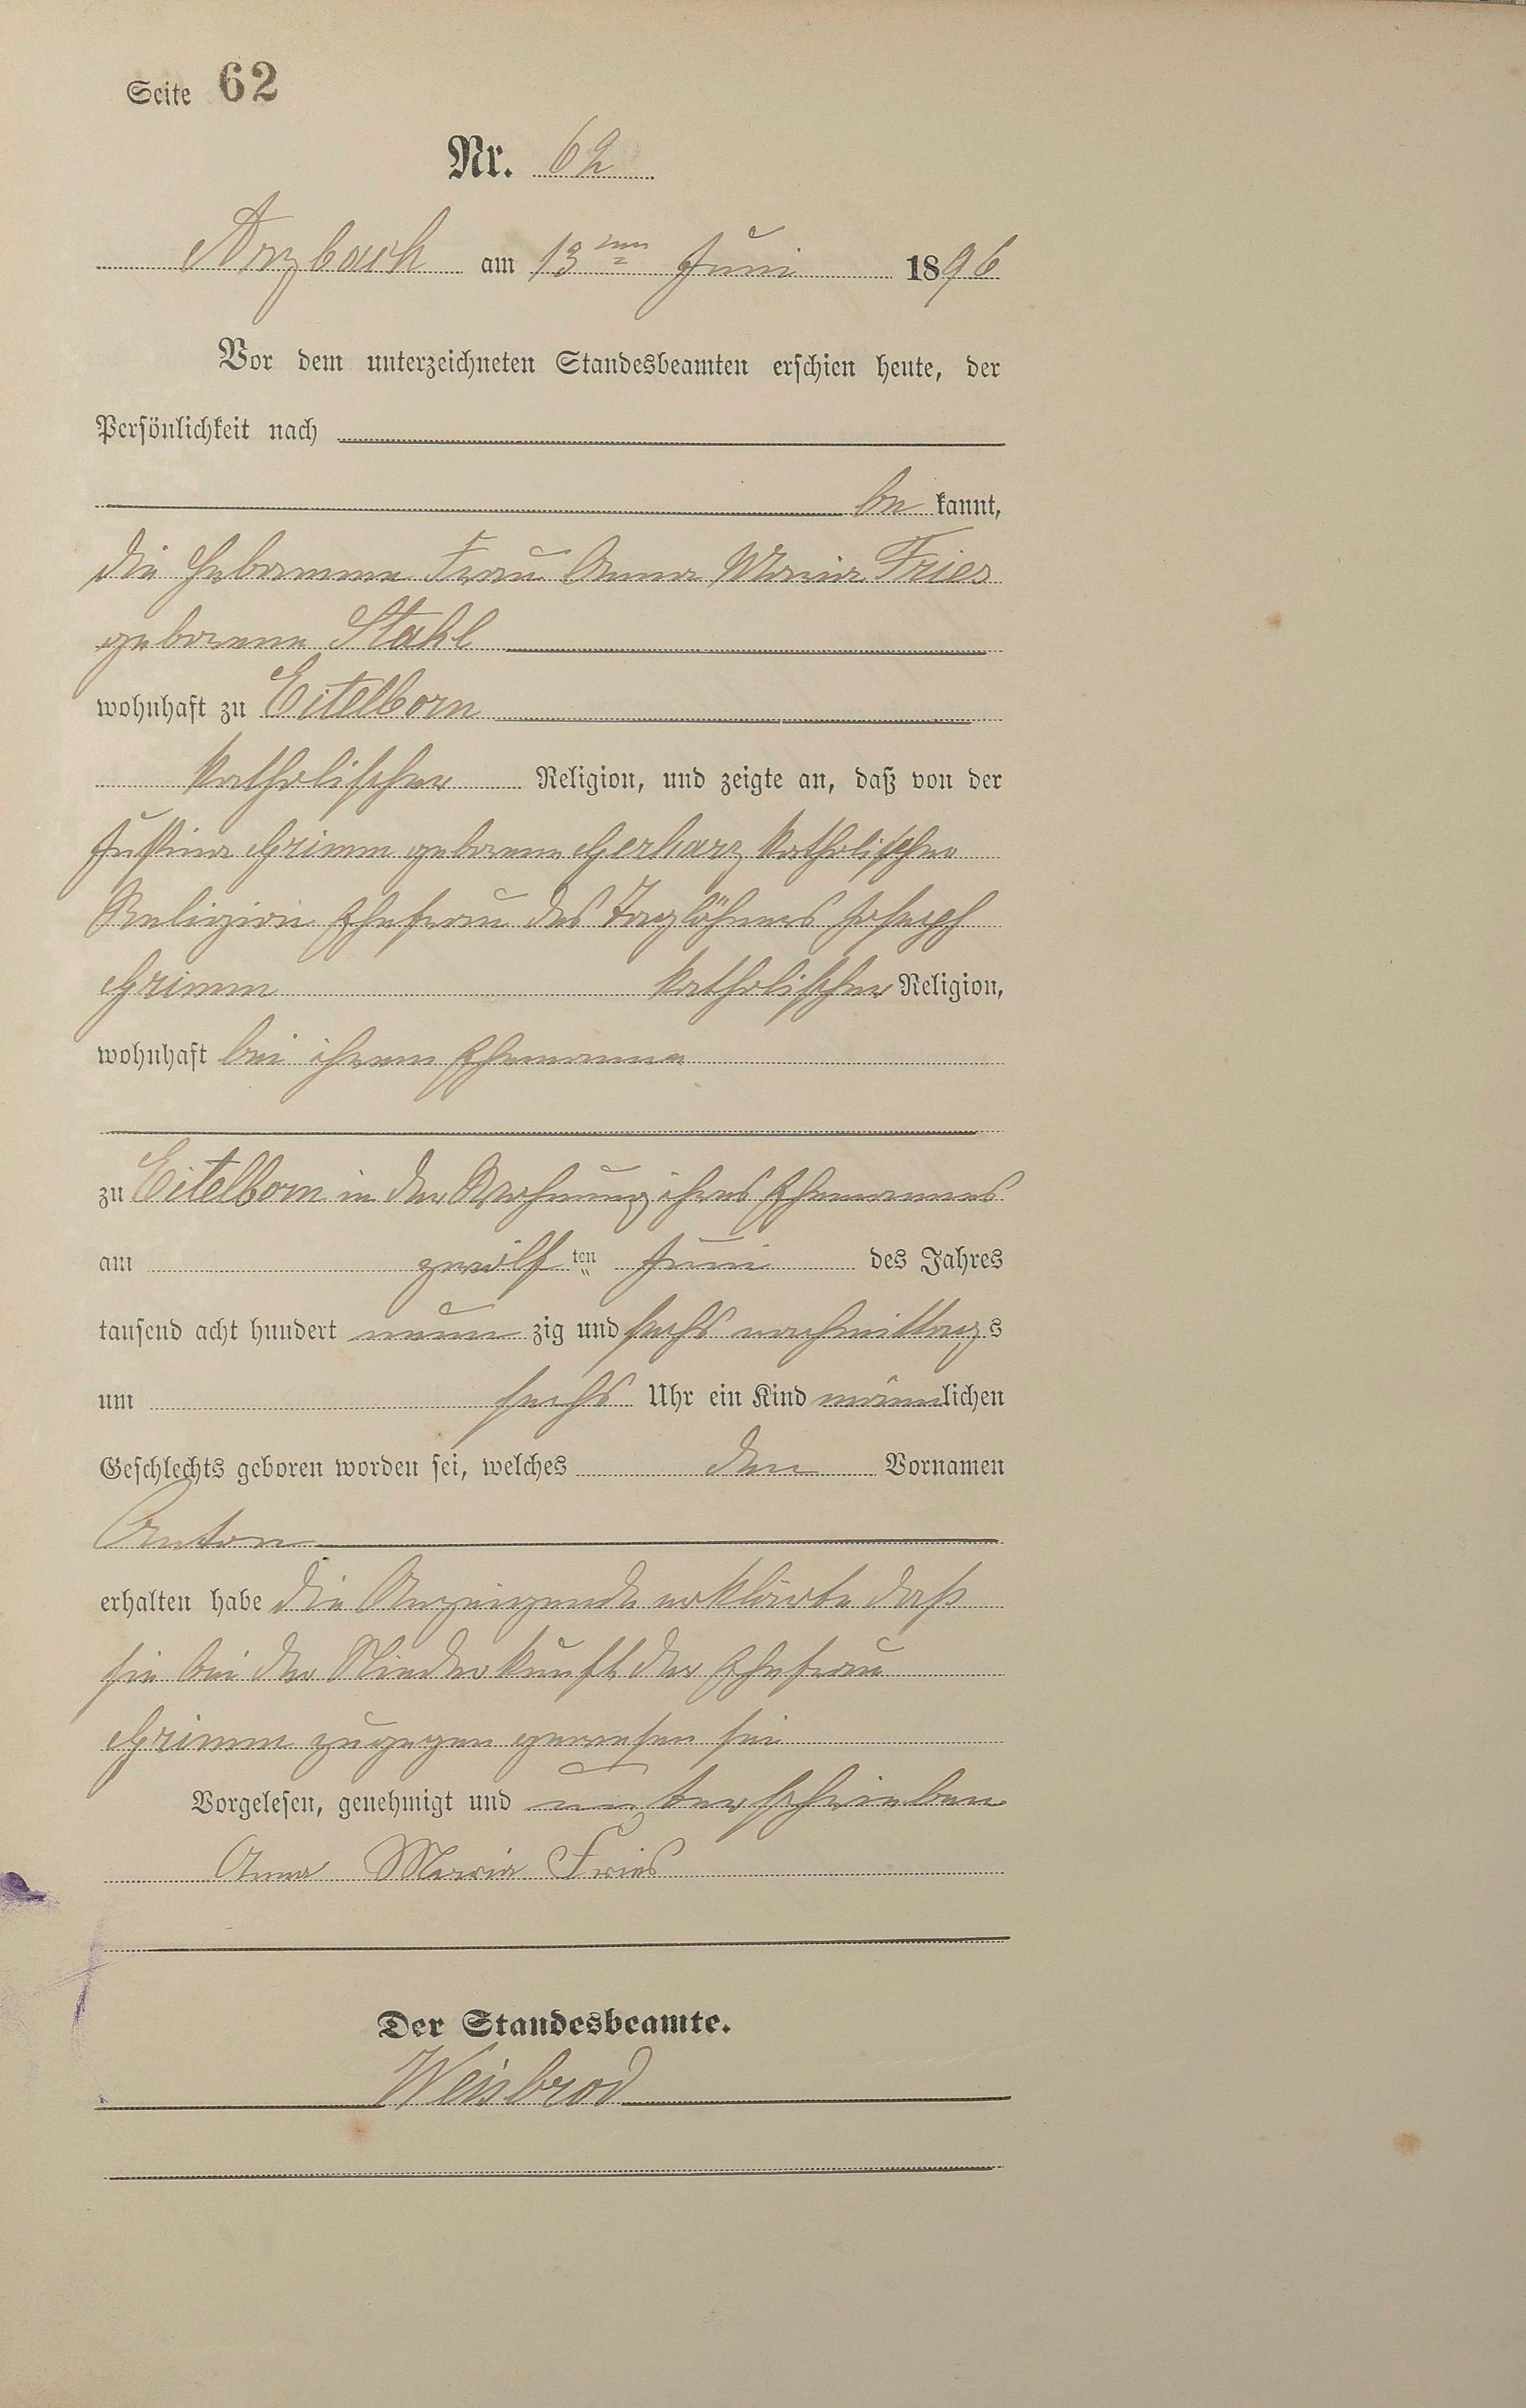 Seite 62
Nr. 62
Arzbach am 13ten Juni 1896
Vor dem unterzeichneten Standesbeamten erschien heute, der
Persönlichkeit nach
be kannt,
die Hebamme Frau Anna Maria Fries
geborene Stahl
wohnhaft zu Eitelborn
katholischer Religion, und zeigte an, daß von der
Justina Grimm geborene Gerharz katholischer
Religion Ehefrau des Taglöhners Joseph
Grimm katholischer Religion,
wohnhaft bei ihrem Ehemanne
zu Eitelborn in der Wohnung ihres Ehemannes
am zwölf ten Juni des Jahres
tausend acht hundert neun zig und sechs nachmittags
um sechs Uhr ein Kind männlichen
Geschlechts geboren worden sei, welches den Vornamen
Anton
erhalten habe die Anzeigende erklärte daß
sie bei der Niederkunft der Ehefrau
Grimm zugegen gewesen sei
Vorgelesen, genehmigt und unterschrieben
Anna Maria Fries
Der Standesbeamte.
Weisbrod